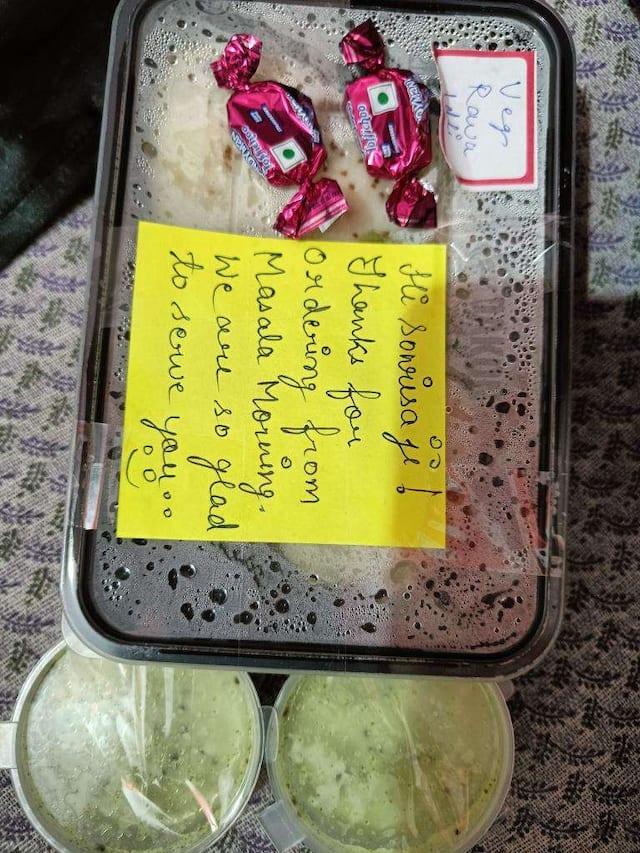 Veg
Rava
Idli
Hi Sonrisa ji!
Thanks for
ordering from
Masala Morning.
We are so glad
to serve you..